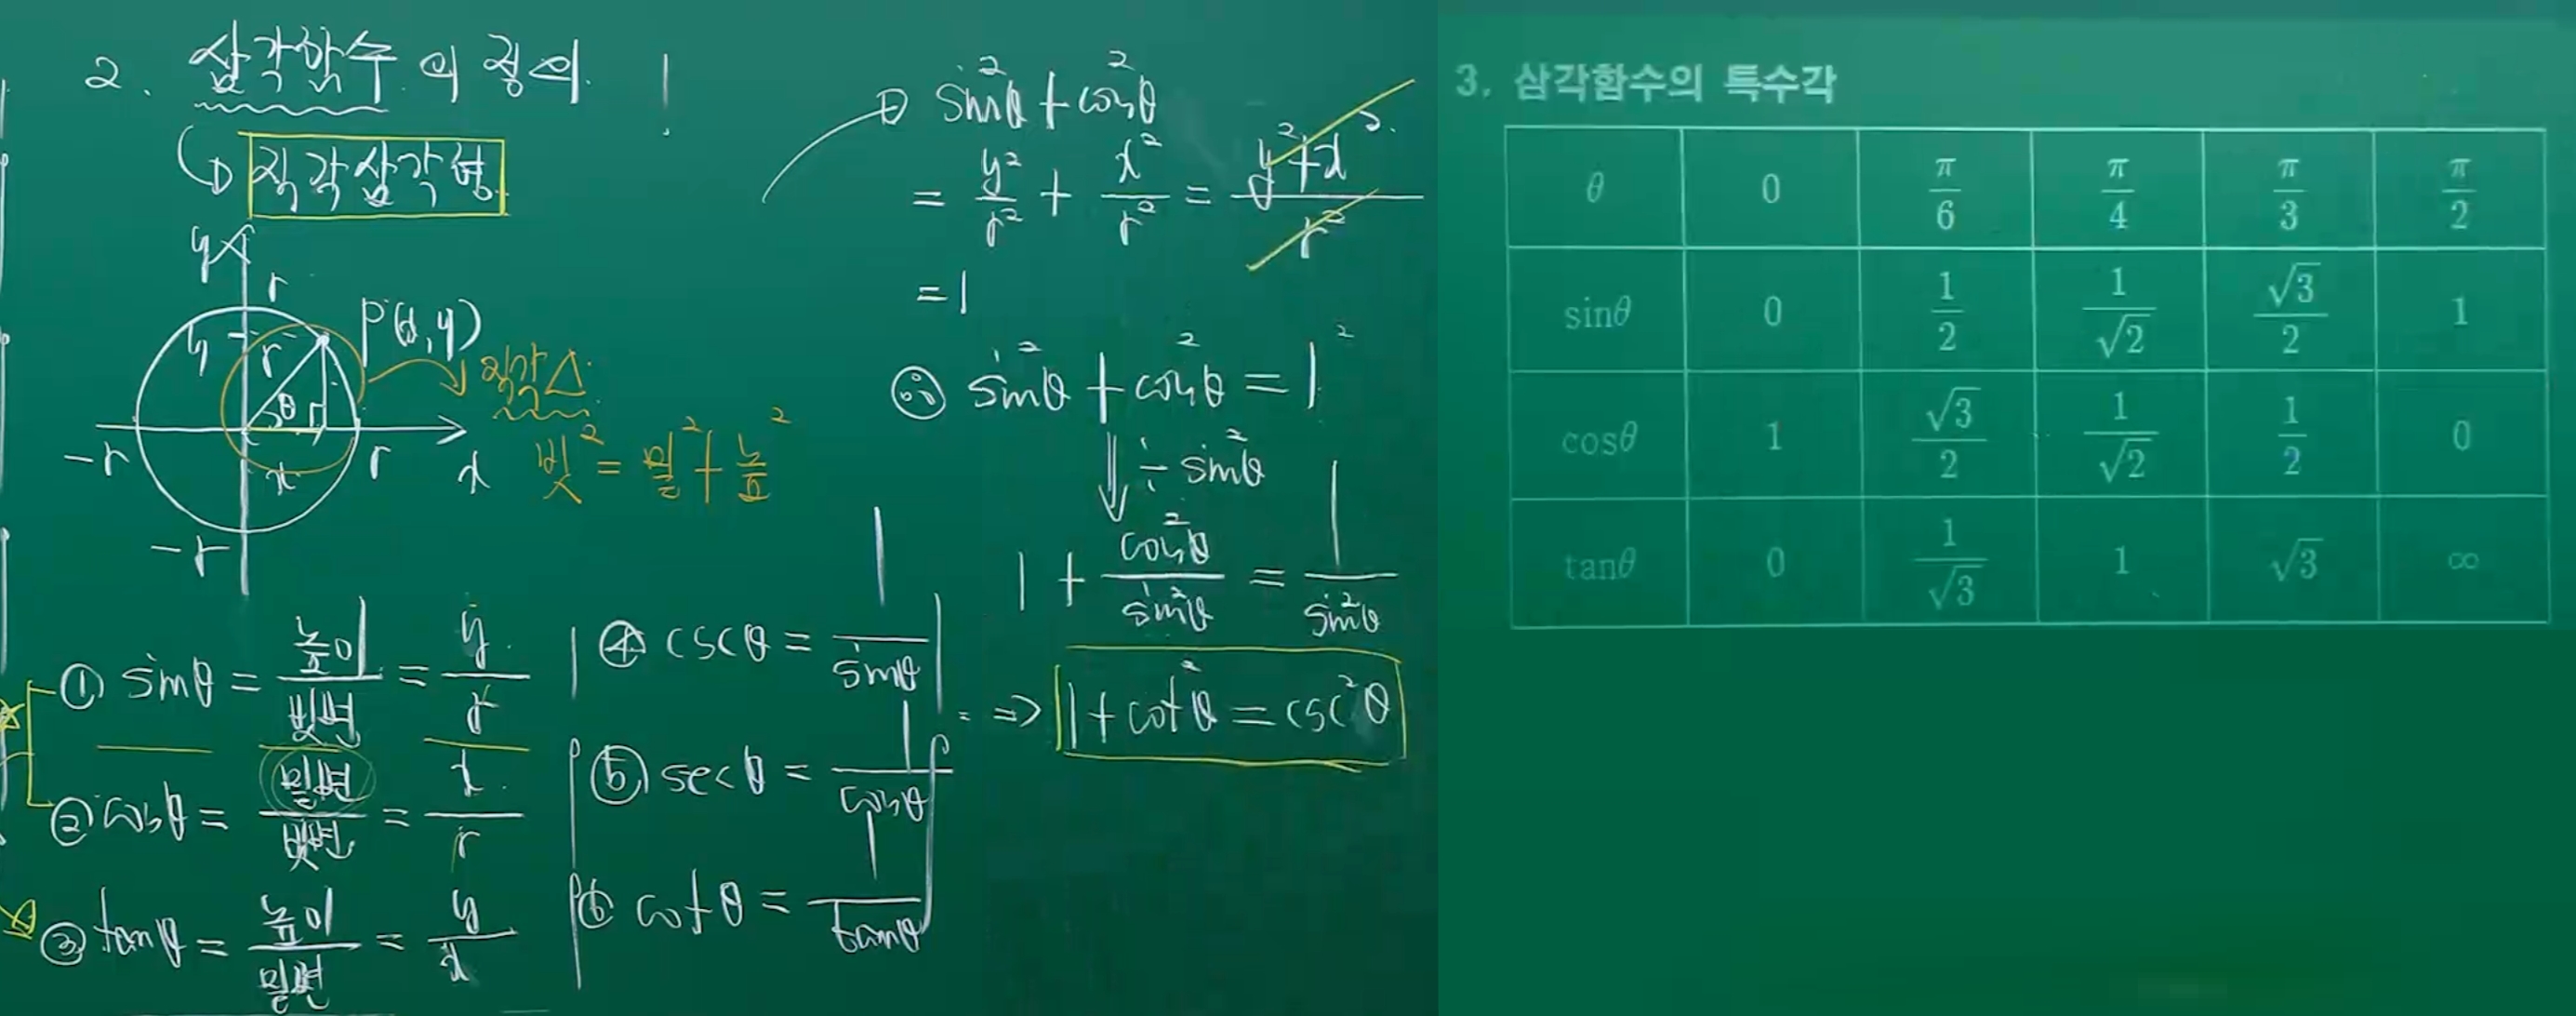 2. 삼각함수의 정의!
직각삼각형
y
r
P(x, y)
y
r
θ
-r
x
r
x
-r
직각△.
빗² = 밑² + 높²
① sinθ = 높이/빗변 = y/r
② cosθ = 밑변/빗변 = x/r
③ tanθ = 높이/밑변 = y/x
④ cscθ = 1/sinθ
⑤ secθ = 1/cosθ
⑥ cotθ = 1/tanθ
sin²θ + cos²θ
= y²/r² + x²/r² = y²+x²/r²
= 1
∴ sin²θ + cos²θ = 1²
÷ sin²θ
1 + cos²θ/sin²θ = 1/sin²θ
⇒ 1 + cot²θ = csc²θ
3. 삼각함수의 특수각
θ 0 π/6 π/4 π/3 π/2
sinθ 0 1/2 1/√2 √3/2 1
cosθ 1 √3/2 1/√2 1/2 0
tanθ 0 1/√3 1 √3 ∞